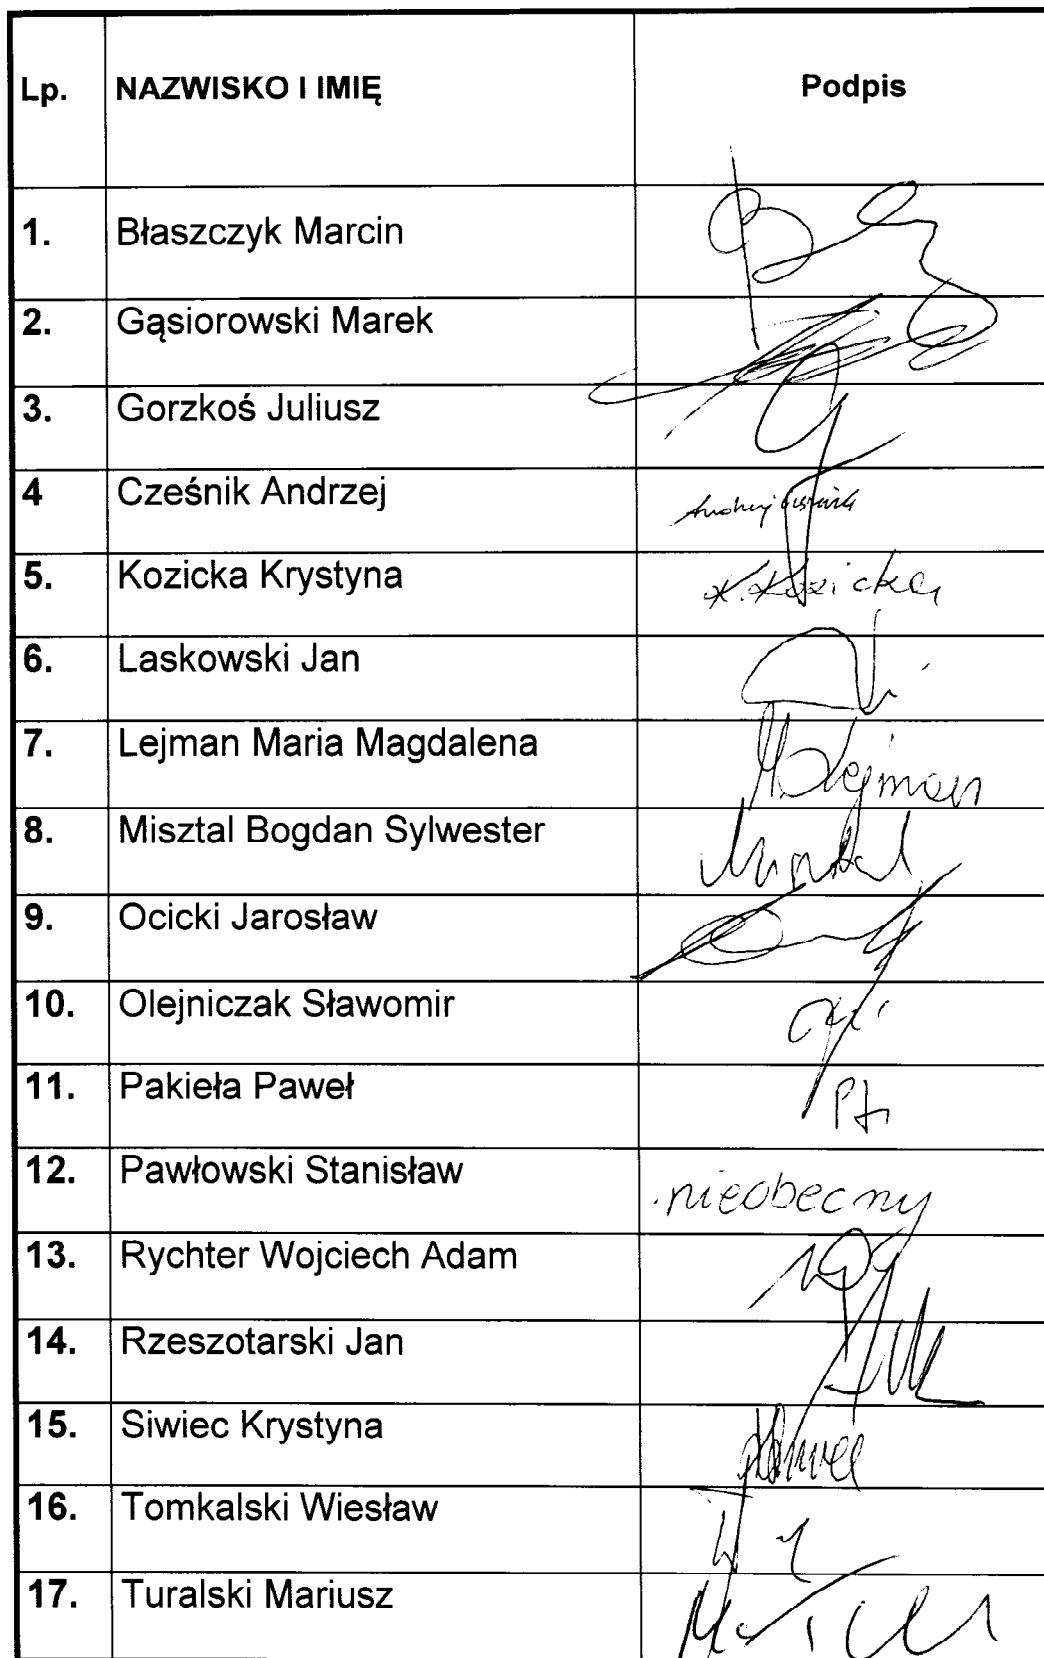 Lp. NAZWISKO I IMIĘ Podpis
1. Błaszczyk Marcin
2. Gąsiorowski Marek
3. Gorzkoś Juliusz
4 Cześnik Andrzej
5. Kozicka Krystyna K. Kozicka
6. Laskowski Jan
7. Lejman Maria Magdalena MLejman
8. Misztal Bogdan Sylwester Misztal
9. Ocicki Jarosław
10. Olejniczak Sławomir
11. Pakieła Paweł
12. Pawłowski Stanisław nieobecny
13. Rychter Wojciech Adam
14. Rzeszotarski Jan
15. Siwiec Krystyna
16. Tomkalski Wiesław
17. Turalski Mariusz